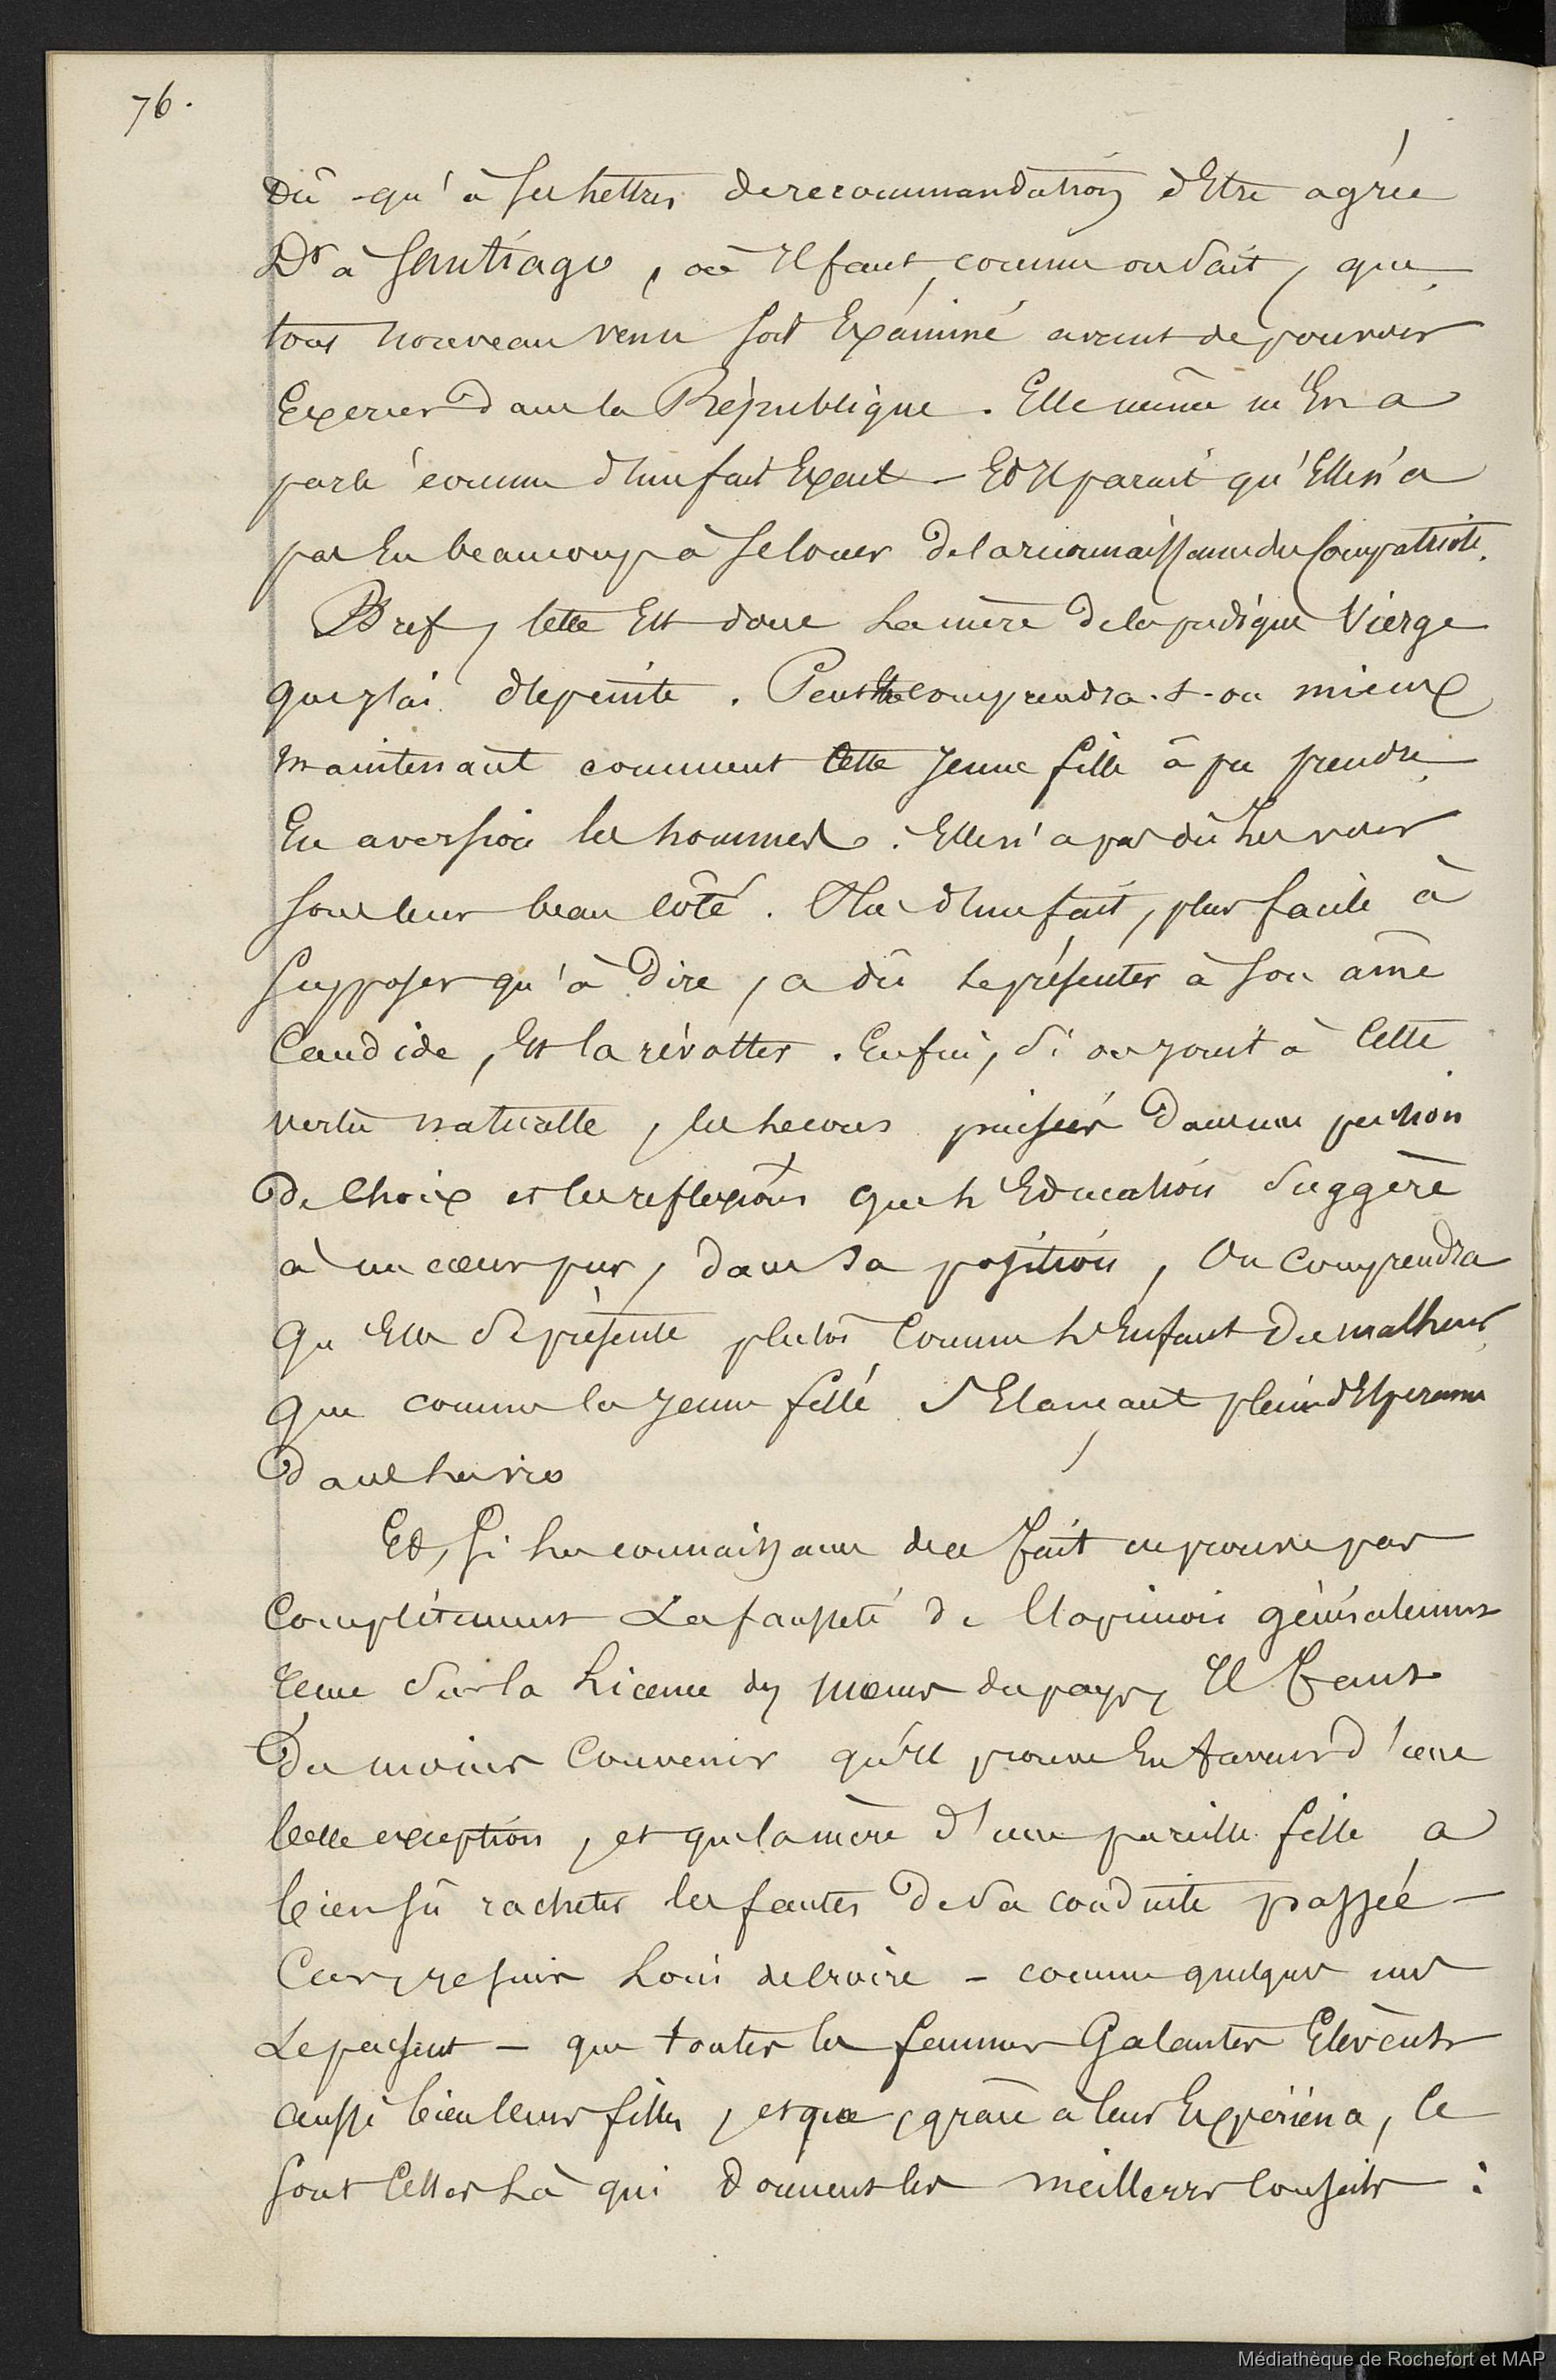 76.
dû qu'à ses lettres de recommandation d'Etre agréé
Dr à Santiago, où Il faut, comme on sait, que
tout nouveau venu soit Examiné avant de pouvoir
Exercer dans la République. Elle même m'En a
parlé comme d'un fait Exact – Et Il parait qu'Elle n'a
pas Eu beaucoup à se louer de la reconnaissance du Compatriote.
Bref, Cette Est donc La mère de la pudique Vierge
que j'ai dépeinte. Peut Etre comprendra-t-on mieux
maintenant comment Cette Jeune fille à pu prendre
En aversion les hommes. Elle n'a pas dû Les voir
sous leur beau Côté. Plus d'un fait, plus facile à
supposer qu'à dire, a dû se présenter à son âme
Candide, Et la révolter. Enfin, si on joint à Cette
vertu naturelle, les secours puisés dans une pension
de Choix et les reflexions que L'Education suggère
à un cœur pur, dans sa position, On Comprendra
qu'Elle se présente plutôt Comme L'Enfant du malheur,
que comme la Jeune fille s'Elançant pleine d'Esperance
dans La vie
Et, si La connaissance de ce fait ne prouve pas
Complètement La fausseté de l'opinion généralement
tenue sur la Licence des mœurs du pays, Il faut
du moins Convenir qu'Il prouve En faveur d'une
belle exception, et que la mère d'une pareille fille a
bien sû racheter les fautes de sa conduite passée –
Car, je suis Loin de Croire – comme quelques uns
Le pensent – que toutes les femmes Galantes Elèvent
aussi bien leurs filles, et que, grâce à leur Expérience, Ce
sont Celles Là qui donnent les meilleurs Conseils :
Médiathèque de Rochefort et MAP